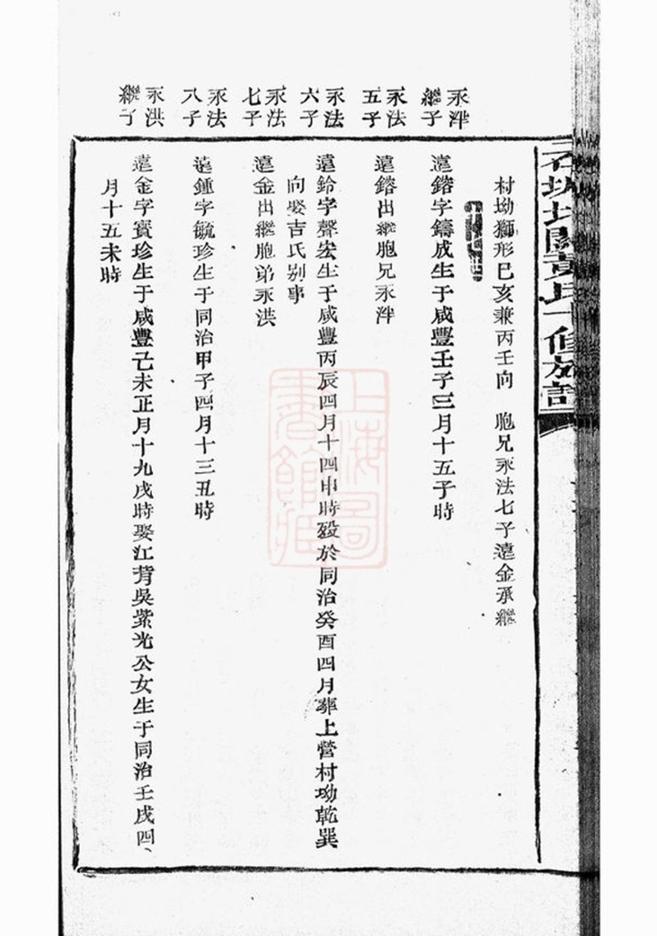 村坳獅形巳亥兼丙壬向 胞兄永法七子遠金承繼
永泮繼子
遠鎔字鑄成生于咸豐壬子三月十五子時
永法五子
遠鎔出繼胞兄永泮
永法六子
遠鈴字聲宏生于咸豐丙辰四月十四申時歿於同治癸酉四月葬上營村坳乾巽
向娶吉氏别事
永法七子
遠金出繼胞弟永洪
永法八子
遠鍾字毓珍生于同治甲子四月十三丑時
永洪繼子
遠金字寶珍生于咸豐己未正月十九戌時娶江背吳紫光公女生于同治壬戌四
月十五未時
上海圖書館藏